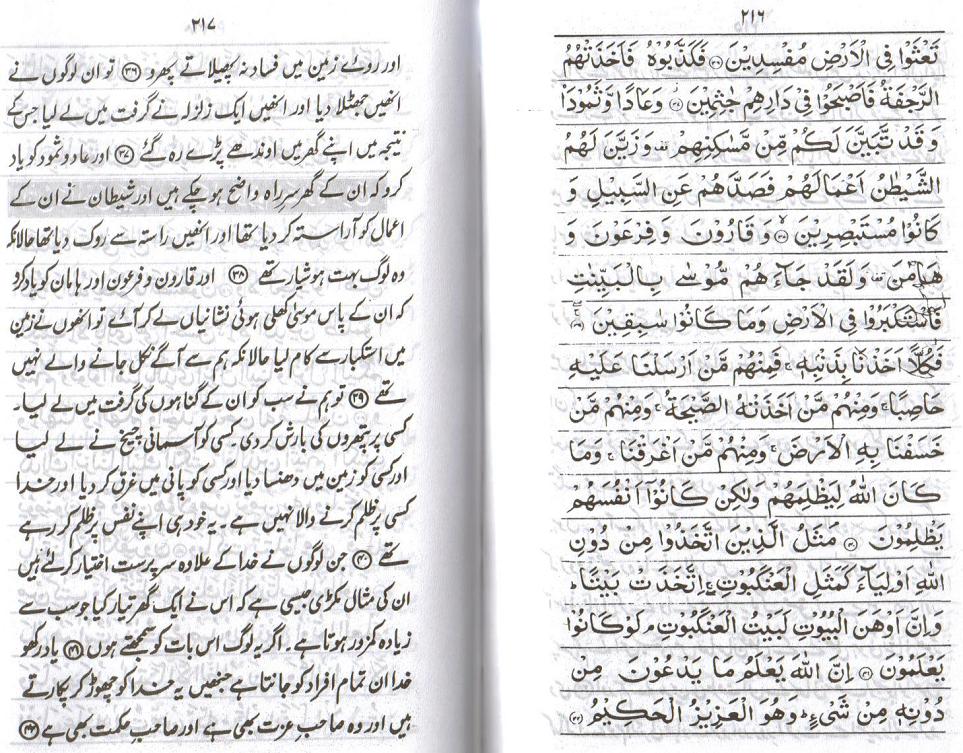 ٢١٦
تَعْثَوْا فِي الْاَرْضِ مُفْسِدِيْنَ ۞ فَكَذَّبُوْهُ فَاَخَذَتْهُمُ
الرَّجْفَةُ فَاَصْبَحُوْا فِيْ دَارِهِمْ جٰثِمِيْنَ ۞ وَعَادًا وَّثَمُوْدَا۟
وَقَدْ تَّبَيَّنَ لَكُمْ مِّنْ مَّسٰكِنِهِمْ وَزَيَّنَ لَهُمُ
الشَّيْطٰنُ اَعْمَالَهُمْ فَصَدَّهُمْ عَنِ السَّبِيْلِ وَ
كَانُوْا مُسْتَبْصِرِيْنَ ۞ وَقَارُوْنَ وَفِرْعَوْنَ وَ
هَامٰنَ وَلَقَدْ جَآءَهُمْ مُّوْسٰى بِالْبَيِّنٰتِ
فَاسْتَكْبَرُوْا فِي الْاَرْضِ وَمَا كَانُوْا سٰبِقِيْنَ
فَكُلًّا اَخَذْنَا بِذَنْۢبِهٖ ۚ فَمِنْهُمْ مَّنْ اَرْسَلْنَا عَلَيْهِ
حَاصِبًا ۚ وَمِنْهُمْ مَّنْ اَخَذَتْهُ الصَّيْحَةُ ۚ وَمِنْهُمْ مَّنْ
خَسَفْنَا بِهِ الْاَرْضَ ۚ وَمِنْهُمْ مَّنْ اَغْرَقْنَا ۚ وَمَا
كَانَ اللّٰهُ لِيَظْلِمَهُمْ وَلٰكِنْ كَانُوْٓا اَنْفُسَهُمْ
يَظْلِمُوْنَ ۞ مَثَلُ الَّذِيْنَ اتَّخَذُوْا مِنْ دُوْنِ
اللّٰهِ اَوْلِيَآءَ كَمَثَلِ الْعَنْكَبُوْتِ ۚ اِتَّخَذَتْ بَيْتًا ؕ
وَاِنَّ اَوْهَنَ الْبُيُوْتِ لَبَيْتُ الْعَنْكَبُوْتِ ۘ لَوْ كَانُوْا
يَعْلَمُوْنَ ۞ اِنَّ اللّٰهَ يَعْلَمُ مَا يَدْعُوْنَ مِنْ
دُوْنِهٖ مِنْ شَيْءٍ ؕ وَهُوَ الْعَزِيْزُ الْحَكِيْمُ ۞
٢١٧
اور روئے زمین میں فساد نہ پھیلاتے پھرو ﴿۳۶﴾ تو ان لوگوں نے
انھیں جھٹلا دیا اور انھیں ایک زلزلہ نے گرفت میں لے لیا جس کے
نتیجہ میں اپنے گھر میں اوندھے پڑے رہ گئے ﴿۳۷﴾ اور عاد و ثمود کو یاد
کرو کہ ان کے گھر سرِ راہ واضح ہو چکے ہیں اور شیطان نے ان کے
اعمال کو آراستہ کر دیا تھا اور انھیں راستہ سے روک دیا تھا حالانکہ
وہ لوگ بہت ہوشیار تھے ﴿۳۸﴾ اور قارون و فرعون اور ہامان کو یاد کرو
کہ ان کے پاس موسیٰ کھلی ہوئی نشانیاں لے کر آئے تو انھوں نے زمین
میں استکبار سے کام لیا حالانکہ ہم سے آگے نکل جانے والے نہیں
تھے ﴿۳۹﴾ تو ہم نے سب کو ان کے گناہوں کی گرفت میں لے لیا۔
کسی پر پتھروں کی بارش کر دی کسی کو آسمانی چیخ نے لے لیا
اور کسی کو زمین میں دھنسا دیا اور کسی کو پانی میں غرق کر دیا اور خدا
کسی پر ظلم کرنے والا نہیں ہے۔ یہ خود ہی اپنے نفس پر ظلم کر رہے
تھے ﴿۴۰﴾ جن لوگوں نے خدا کے علاوہ سرپرست اختیار کر لئے ہیں
ان کی مثال مکڑی جیسی ہے کہ اس نے ایک گھر تیار کیا جو سب سے
زیادہ کمزور ہوتا ہے۔ اگر یہ لوگ اس بات کو سمجھتے ہوں ﴿۴۱﴾ یاد رکھو
خدا ان تمام افراد کو جانتا ہے جنھیں یہ خدا کو چھوڑ کر پکارتے
ہیں اور وہ صاحبِ عزت بھی ہے اور صاحبِ حکمت بھی ہے ﴿۴۲﴾